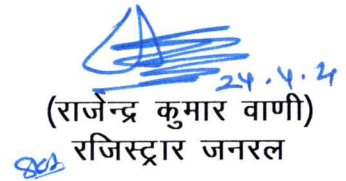 24.4.2
(राजेन्द्र कुमार वाणी)
रजिस्ट्रार जनरल